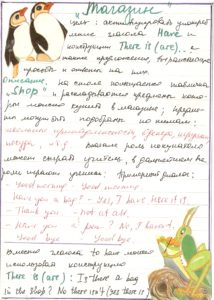 "Магазин"
Цель: активизировать употребление
глагола Have и
конструкции There is (are)..., а
также предложения, выражающие
просьбу и ответы на них.
описание. на столе помещается табличка
"Shop" и раскладываются предметы, которые
можно купить в магазине; предметы
могут быть подобраны по темам:
школьные принадлежности, одежда, игрушки,
посуда, и т.д. Вначале роль покупателя
может сыграть учитель, в дальнейшем все
роли играют ученики. Примерный диалог:
- Good morning! - Good morning.
- Have you a bag? - Yes, I have. Here it is.
- Thank you. - Not at all.
- Have you a pen? - No, I haven't.
- Good bye. - Good bye.
Вместо глагола to have можно
использовать конструкцию
There is (are): Is there a bag
in the shop? No there isn't (yes there is)